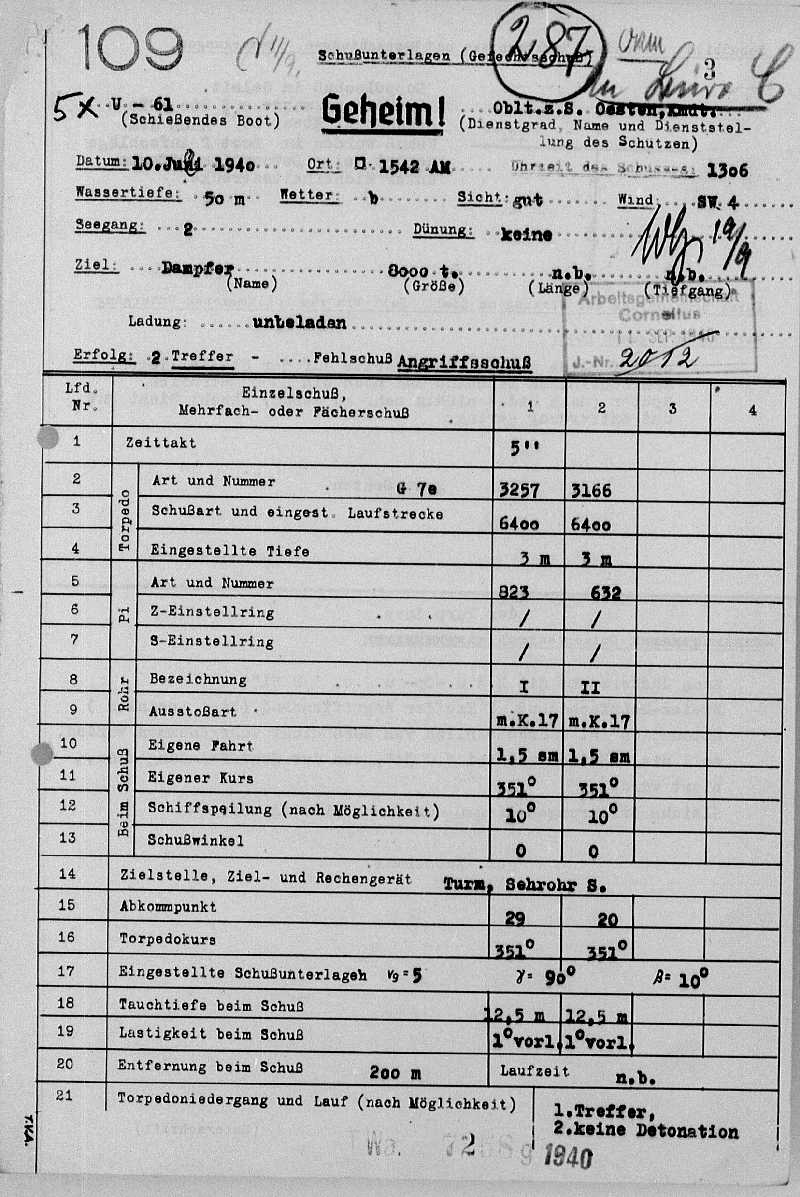 109
287
3
Schußunterlagen (Gefechtsschuß)
5x U - 61
Geheim!
Oblt.z.S. Oesten, Kmdt.
(Schießendes Boot)
(Dienstgrad, Name und Dienststel-
lung des Schützen)
Datum: 10. Juni 1940 Ort: □ 1542 AM Uhrzeit des Schusses: 1306
Wassertiefe: 50 m Wetter: b Sicht: gut Wind SW. 4
Seegang: 2 Dünung: keine
19/9
Ziel: Dampfer 8000 t. n.b. n.b.
(Name) (Größe) (Länge) (Tiefgang)
Arbeitsgemeinschaft
Cornelius
11. SEP. 1940
J.-Nr. 2012
Ladung: unbeladan
Erfolg: 2 Treffer - Fehlschuß Angriffsschuß
Lfd. Nr. Einzelschuß, Mehrfach- oder Fächerschuß 1 2 3 4
1 Zeittakt 5''
Torpedo
2 Art und Nummer G 7e 3257 3166
3 Schußart und eingest. Laufstrecke 6400 6400
4 Eingestellte Tiefe 3 m 3 m
Pi
5 Art und Nummer 823 632
6 Z-Einstellring / /
7 S-Einstellring / /
Rohr
8 Bezeichnung I II
9 Ausstoßart m.K.17 m.K.17
Beim Schuß
10 Eigene Fahrt 1,5 sm 1,5 sm
11 Eigener Kurs 351° 351°
12 Schiffspeilung (nach Möglichkeit) 10° 10°
13 Schußwinkel 0 0
14 Zielstelle, Ziel- und Rechengerät Turm, Sehrohr S.
15 Abkommpunkt 29 20
16 Torpedokurs 351° 351°
17 Eingestellte Schußunterlagen vg = 5 γ = 90° β = 10°
18 Tauchtiefe beim Schuß 12,5 m 12,5 m
19 Lastigkeit beim Schuß 1° vorl. 1° vorl.
20 Entfernung beim Schuß 200 m Laufzeit n.b.
21 Torpedoniedergang und Lauf (nach Möglichkeit) 1.Treffer,
2.keine Detonation
T.K.A.
1940